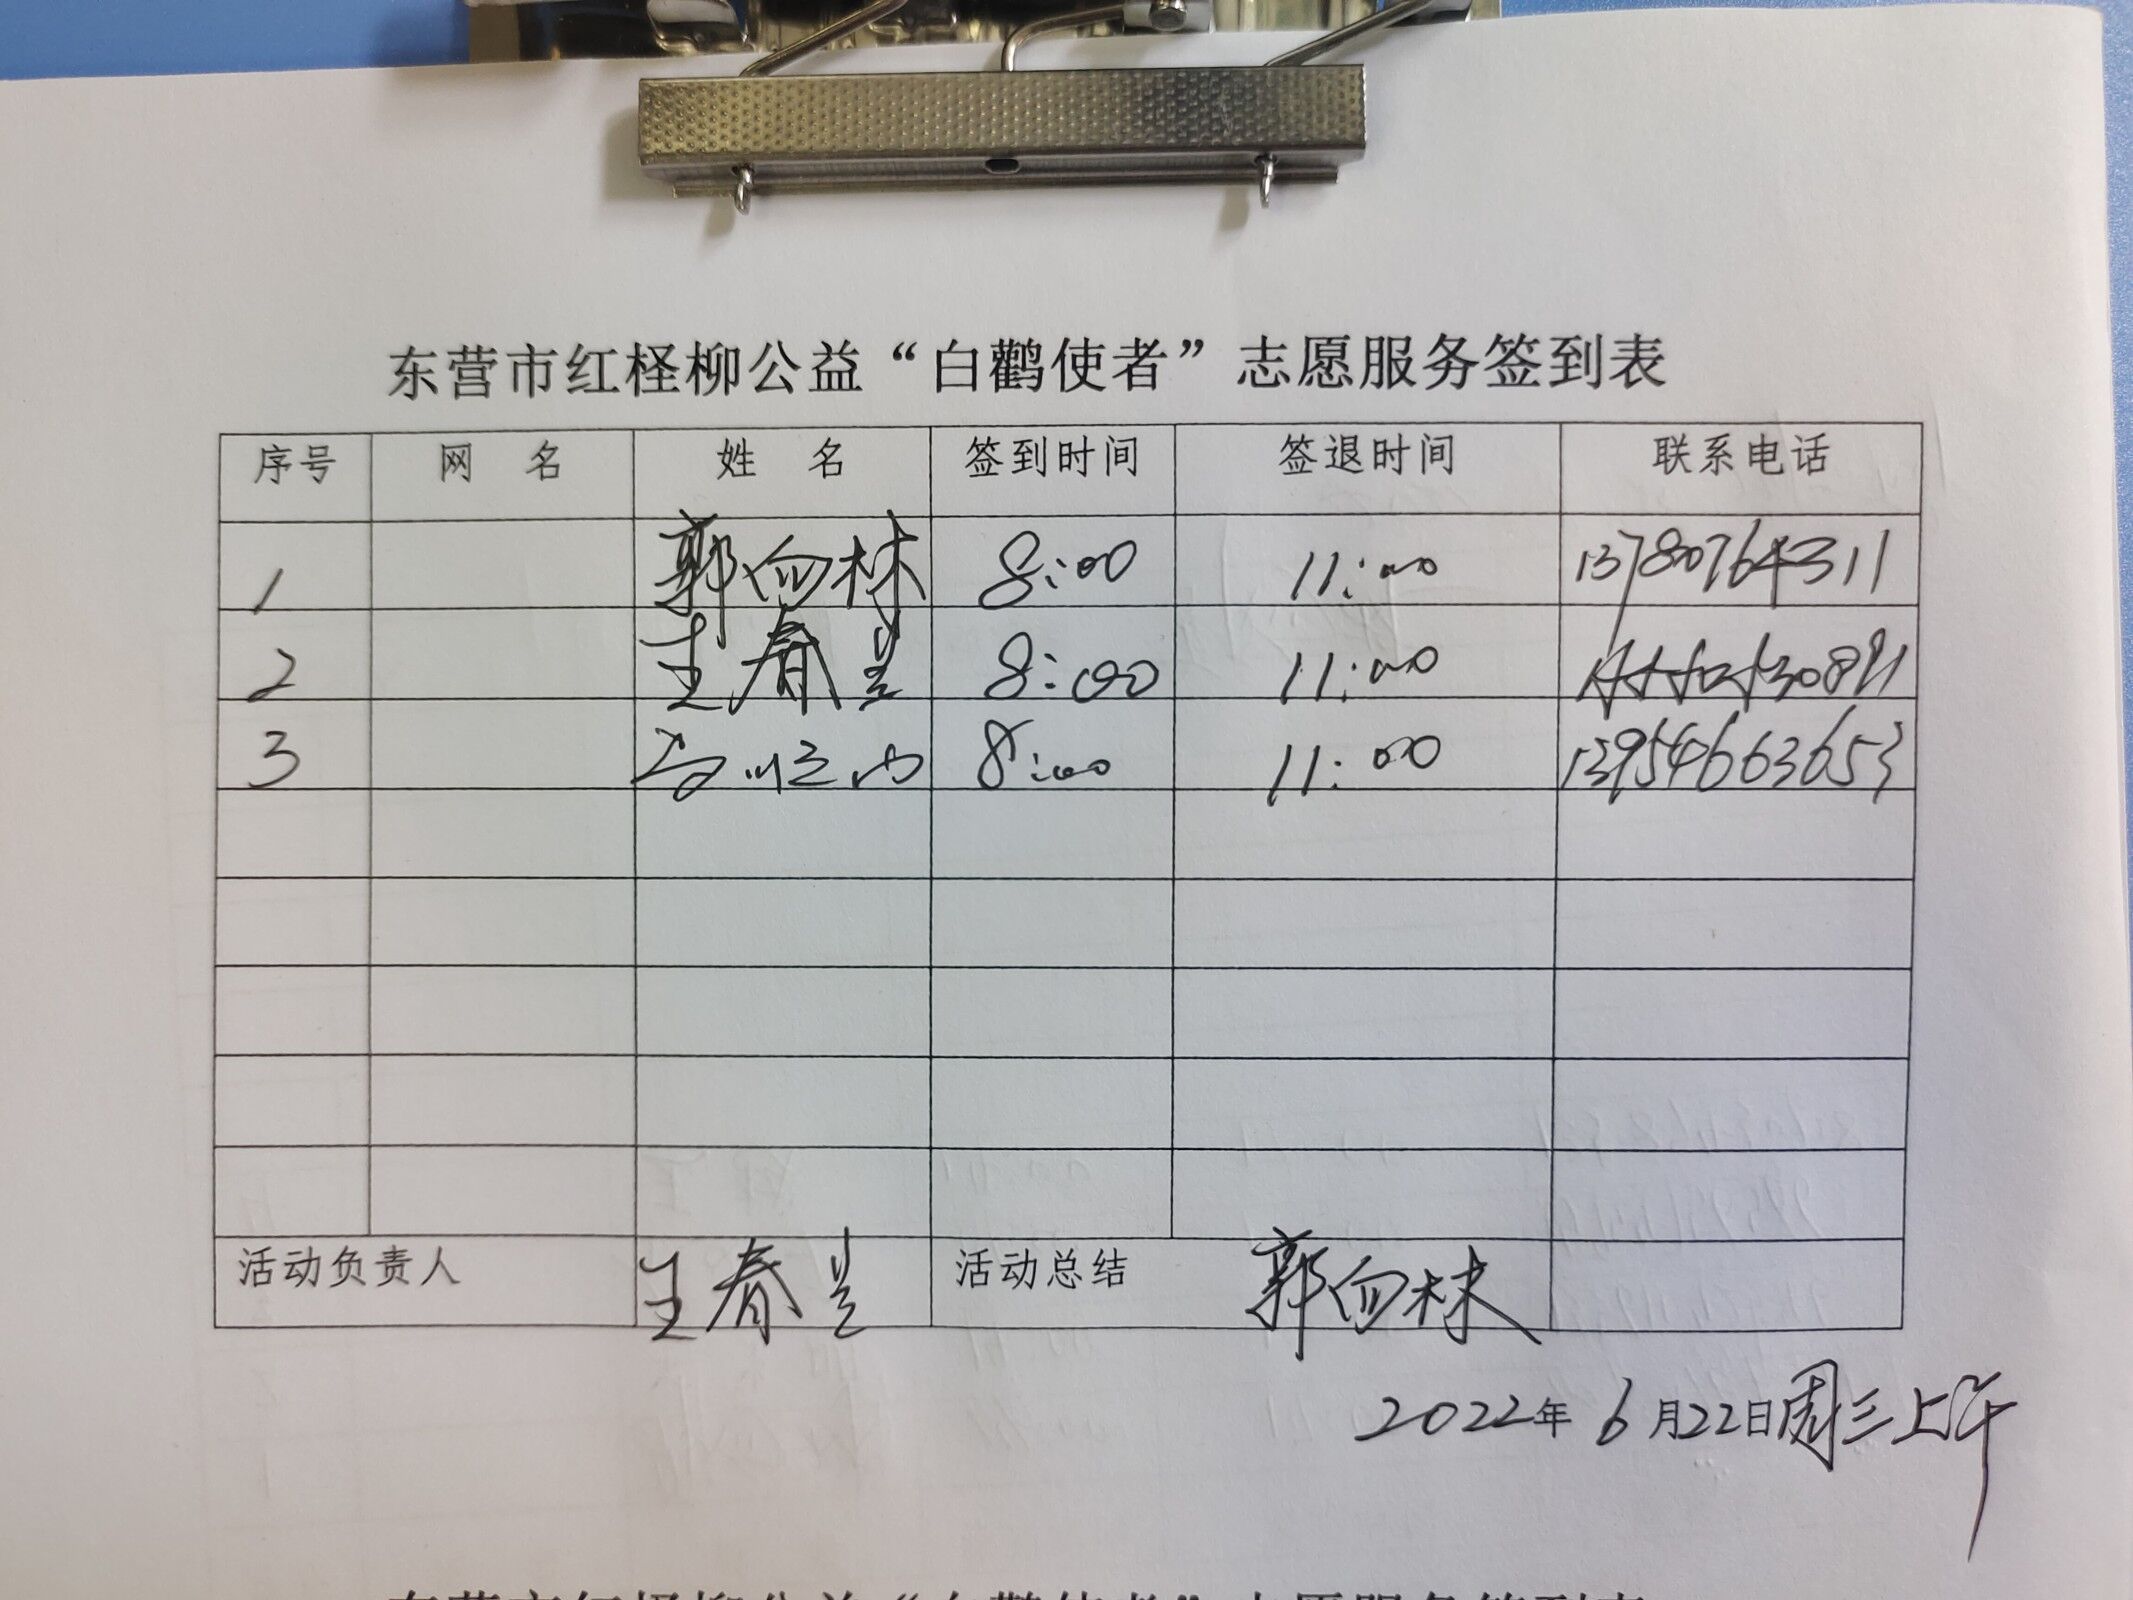 东营市红柽柳公益“白鹳使者”志愿服务签到表
序号 网 名 姓 名 签到时间 签退时间 联系电话
1 郭向林 8:00 11:00 13780764311
2 王春 8:00 11:00
3 8:00 11:00 13954663653
活动负责人 王春 活动总结 郭向林
2022年 6月22日周三上午
东营市红柽柳公益“白鹳使者”志愿服务签到表